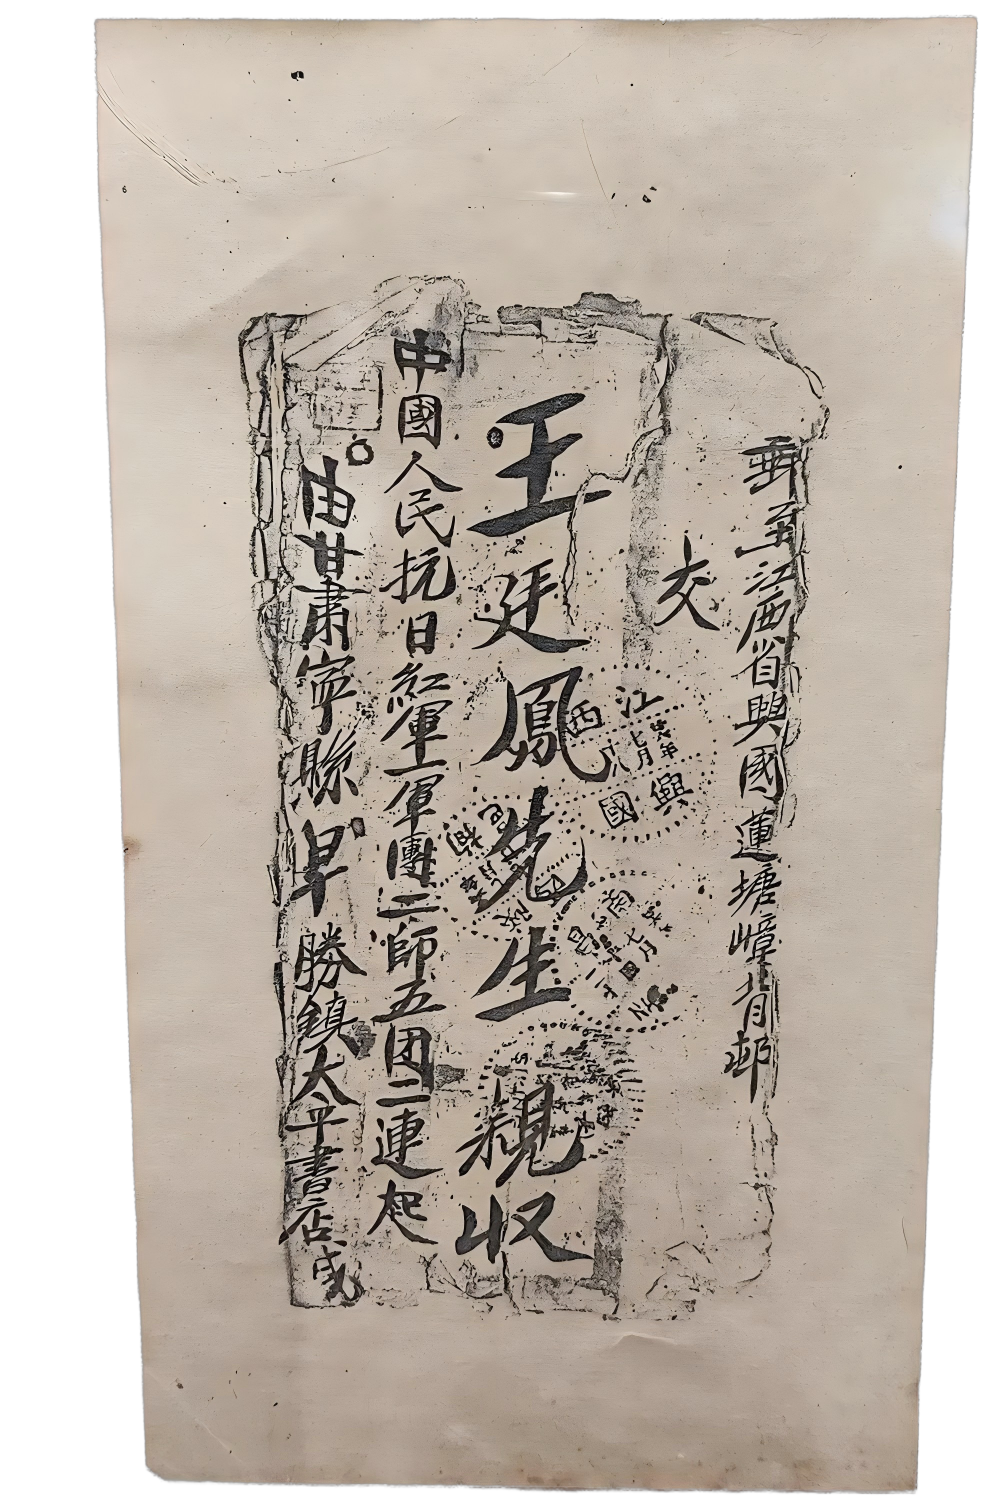 郵至江西省興國蓮塘嶂背邨
交
王廷鳳先生親收
中國人民抗日紅軍一軍團二師五团二連起
由甘肅寧縣早勝鎮太平書店
江西
七月
興國
南昌
七月